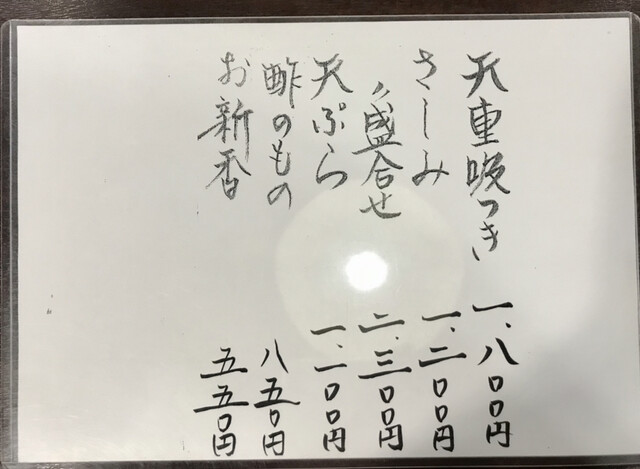 天重吸つき 一.八〇〇円
さしみ 一.二〇〇円
〃盛合せ 二.三〇〇円
天ぷら 一.一〇〇円
酢のもの 八五〇円
お新香 五五〇円